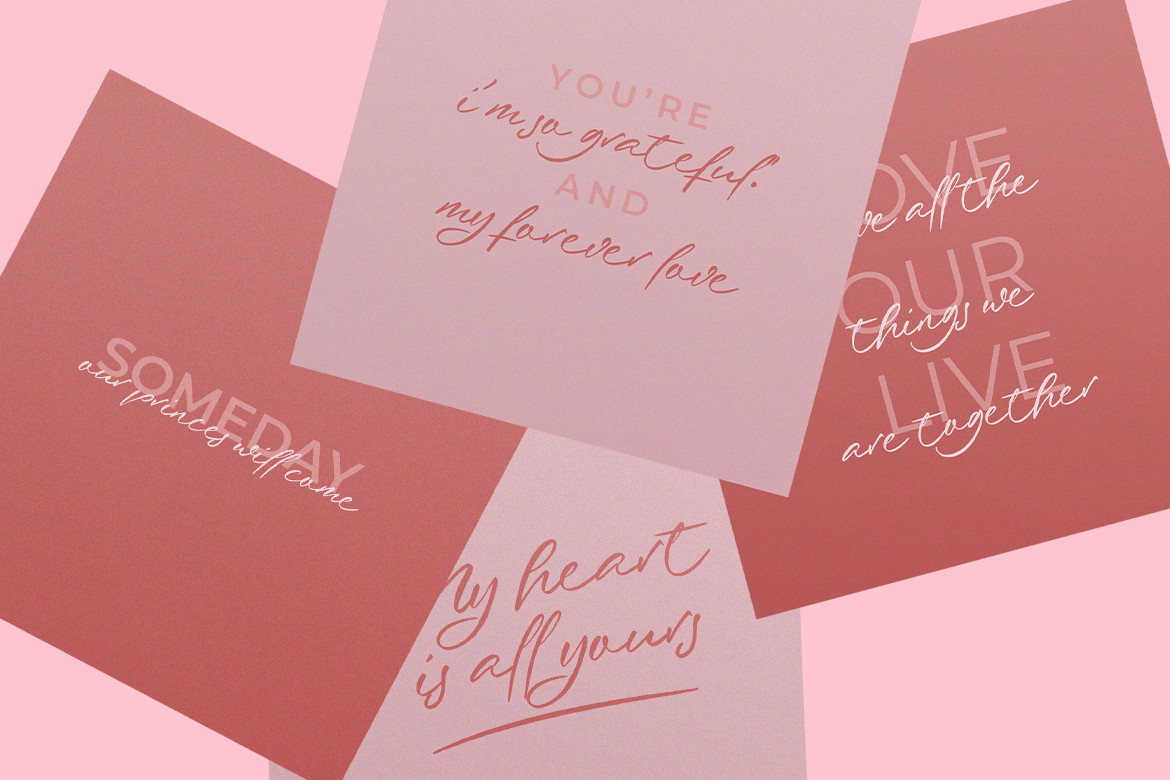 YOU'RE
i'm so grateful.
AND
my forever love
OVE
ve all the
OUR
things we
LIVE
are together
SOMEDAY
our princes will come
My heart
is all yours